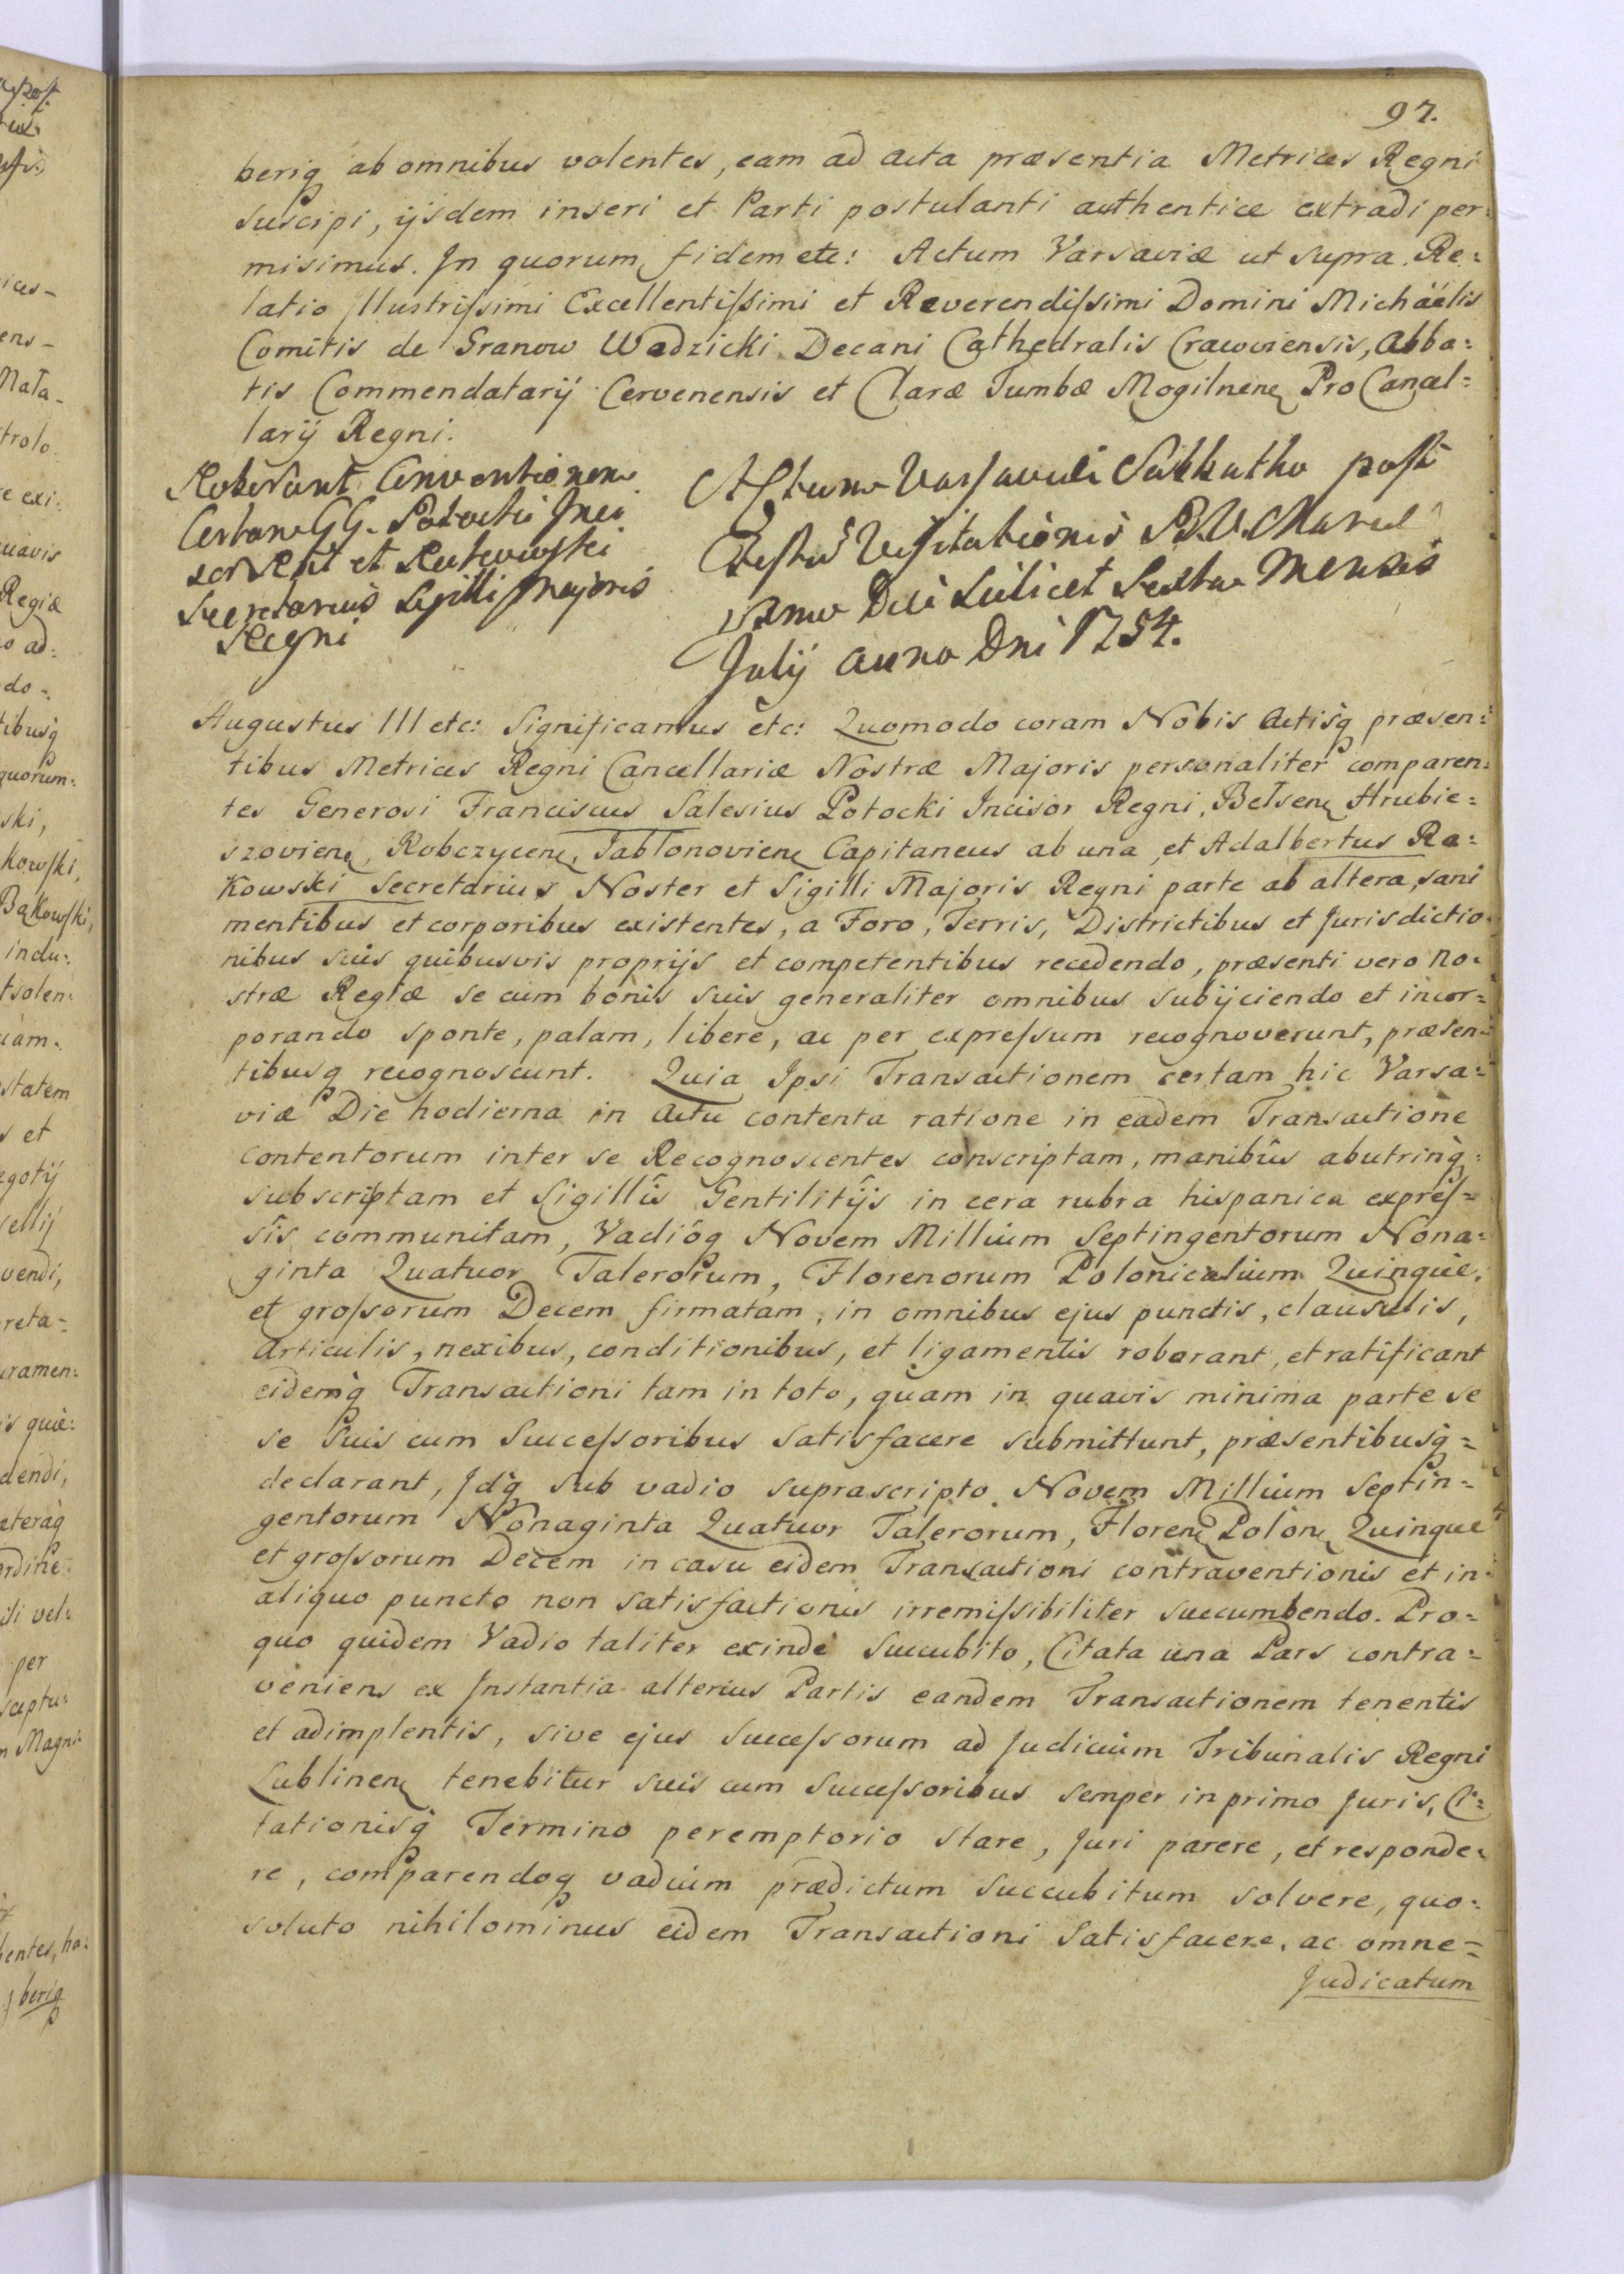 97.
beriq ab omnibus volentes, eam ad acta præsentia Metrices Regni
suscipi, ijsdem inseri et Parti postulanti authentice extradi per=
misimus. In quorum fidem etc: Actum Varsaviæ ut supra. Re=
latio Illustrißimi Excellentißimi et Reverendißimi Domini Michäelis
Comitis de Granow Wodzicki Decani Cathedralis Cracoviensis, Abba=
tis Commendatarij Cervenensis et Claræ Tumbæ Mogilnen Pro Cancel=
larij Regni.
Roborant Conventionem
Certam GG. Potocki Inci
sor Rni et Rakowski
Secretarius Sigilli Majoris
Regni
Actum Varsaviæ Sabbatho post
Festum Visitationis B.V. Mariæ
Die scilicet Sexta Mensis
Julij anno Dni 1754.
Augustus III etc: Significamus etc: Quomodo coram Nobis Actisq præsen=
tibus Metrices Regni Cancellariæ Nostræ Majoris personaliter comparen=
tes Generosi Franciscus Salesius Potocki Incisor Regni, Bełsen Hrubie=
szovien, Robczycen, Jabłonovien Capitaneus ab una, et Adalbertus Ra=
kowski Secretarius Noster et Sigilli Majoris Regni parte ab altera, sani
mentibus et corporibus existentes, a Foro, Terris, Districtibus et Jurisdictio=
nibus suis quibusvis proprijs et competentibus recedendo, præsenti vero No=
stræ Regiæ se cum bonis suis generaliter omnibus subijciendo et incor=
porando sponte, palam, libere, ac per expreßum recognoverunt, præsen=
tibusq recognoscunt. Quia Ipsi Transactionem certam hic Varsa=
viæ Die hodierna in Actu contenta ratione in eadem Transactione
contentorum inter se Recognoscentes conscriptam, manibûs abutrinq=
subscriptam et Sigillîs Gentilitîjs in cera rubra hispanica expreß=
sîs communitam, Vadióq Novem Millium Septingentorum Nona=
ginta Quatuor Talerorum, Florenorum Polonicalium Quinque,
et großorum Decem firmatam, in omnibus ejus punctis, clausulis,
Articulis, nexibus, conditionibus, et ligamentis roborant, et ratificant
eidemq Transactioni tam in toto, quam in quavis minima parte se
se suis cum Succeßoribus satisfacere submittunt, præsentibusq=
declarant, Idq sub vadio suprascripto Novem Millium Septin=
gentorum Nonaginta Quatuor Talerorum, Floren Polon Quinque
et großorum Decem in casu eidem Transactioni contraventionis et in=
aliquo puncto non satisfactionis irremißibiliter succumbendo. Pro=
quo quidem Vadio taliter exinde succubito, Citata una Pars contra=
veniens ex Instantia alterius Partis eandem Transactionem tenentis
et adimplentis, sive ejus Succeßorum ad Judicium Tribunalis Regni
Lublinen tenebitur suis cum Succeßoribus semper in primo Juris, Ci=
tationisq Termino peremptorio stare, Juri parere, et responde=
re, comparendoq vadium prædictum succubitum solvere, quo=
soluto nihilominus eidem Transactioni satisfacere, ac omne=
Judicatum